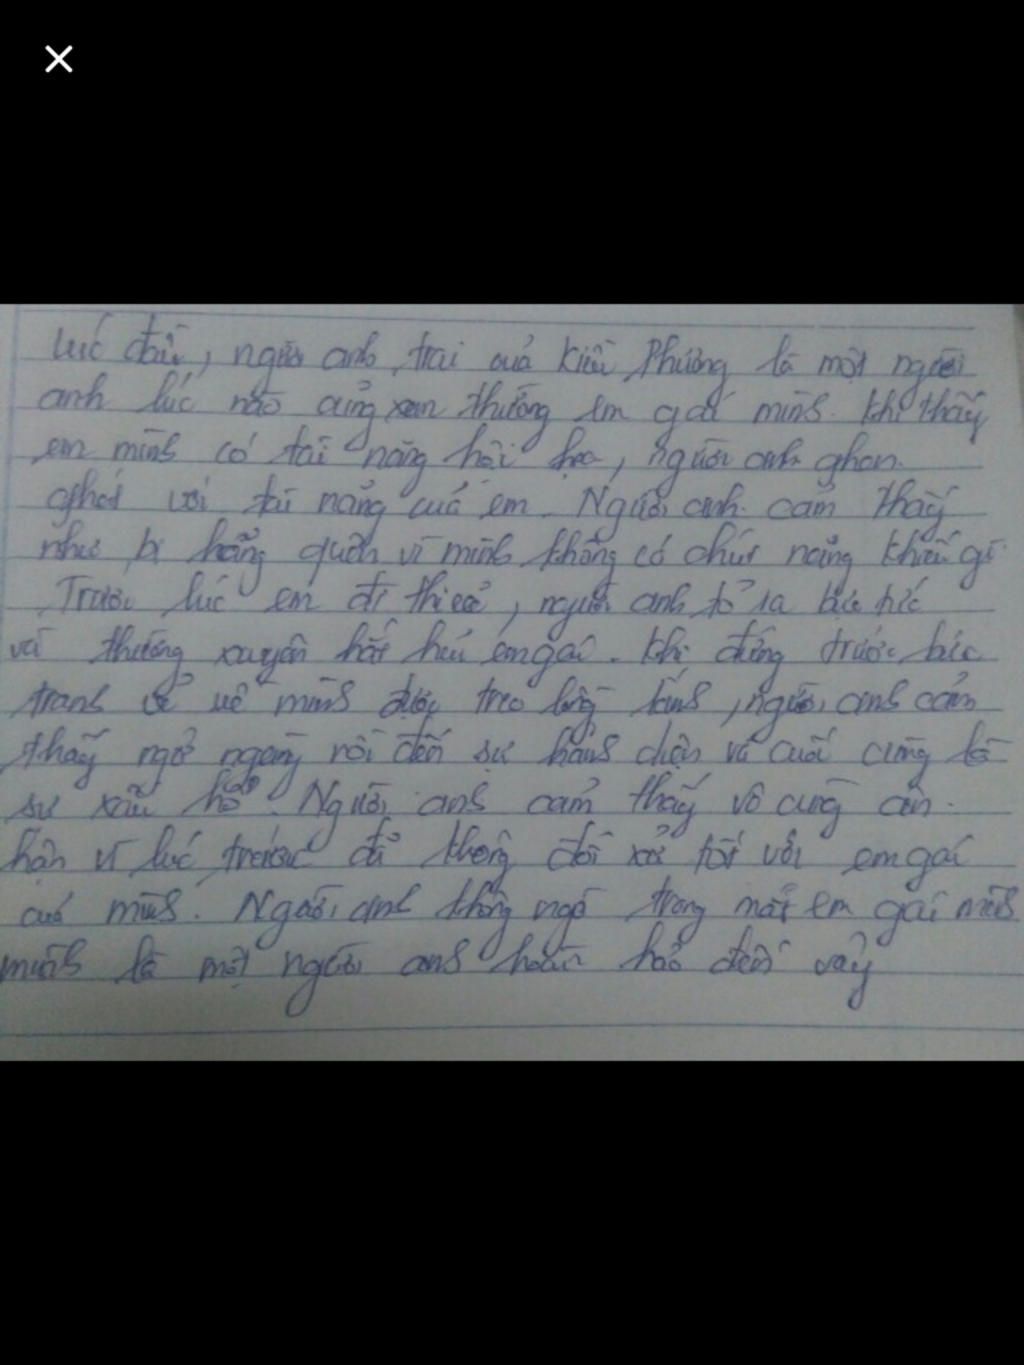 Lúc đầu, người anh trai của Kiều Phương là một người
anh lúc nào cũng xem thường em gái mình. Khi thấy
em mình có tài năng hội họa, người anh ghen
ghét với tài năng của em. Người anh cảm thấy
như bị lãng quên vì mình không có chút năng khiếu gì
Trước lúc em đi thi, người anh tỏ ra bực tức
và thường xuyên hắt hủi em gái. Khi đứng trước bức
tranh vẽ về mình được treo lồng kính, người anh cảm
thấy ngỡ ngàng rồi đến sự hãnh diện và cuối cùng là
sự xấu hổ. Người anh cảm thấy vô cùng ân
hận vì lúc trước đã không đối xử tốt với em gái
của mình. Người anh không ngờ trong mắt em gái mình
mình là một người anh hoàn hảo đến vậy